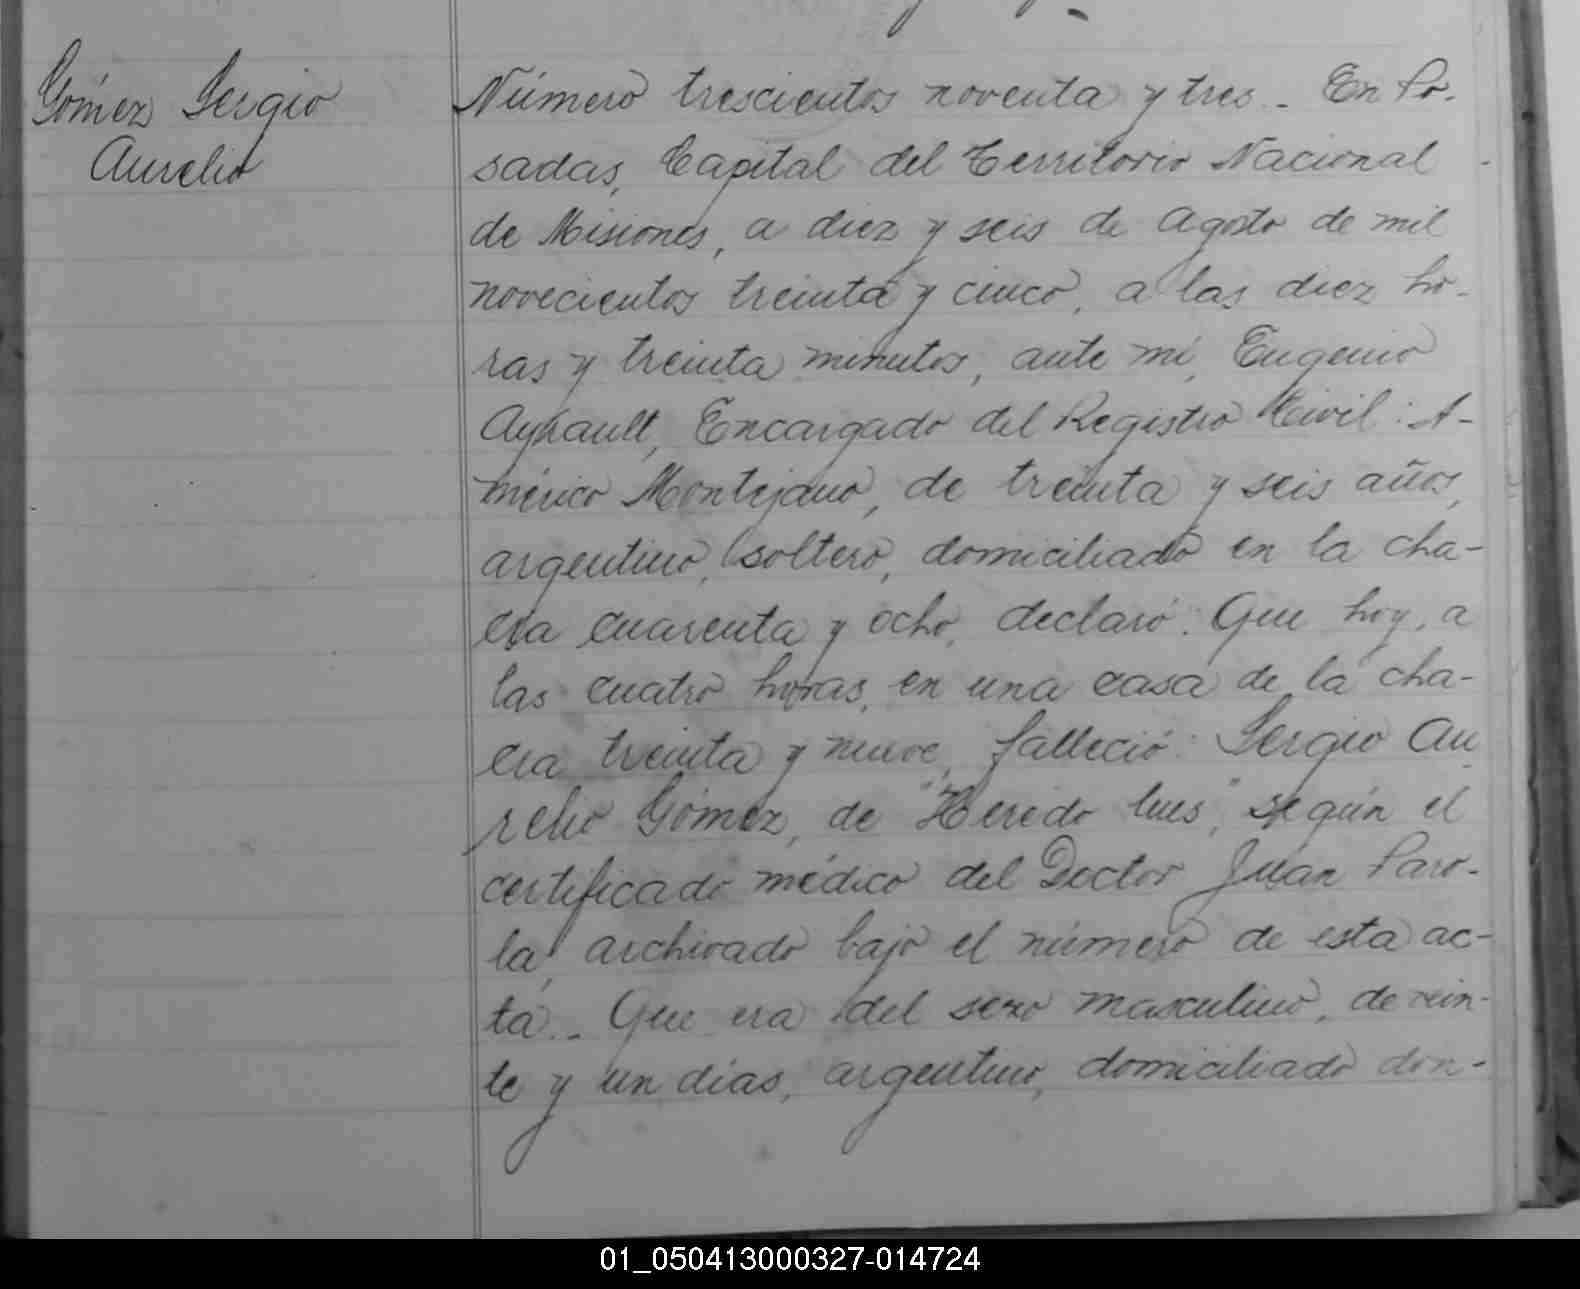 Gómez Sergio
Aurelio
Número trescientos noventa y tres.- En Po-
sadas, Capital del Territorio Nacional
de Misiones, a diez y seis de agosto de mil
novecientos treinta y cinco, a las diez ho-
ras y treinta minutos, ante mí, Eugenio
Ayrault, Encargado del Registro Civil: A-
mérico Montejano, de treinta y seis años,
argentino, soltero, domiciliado en la cha-
cra cuarenta y ocho, declaró: Que hoy, a
las cuatro horas, en una casa de la cha-
cra treinta y nueve, falleció: Sergio Au
relio Gómez, de "Heredo lues", según el
certificado médico del Doctor Juan Paro-
la, archivado bajo el número de esta ac-
ta.- Que era del sexo masculino, de vein-
te y un días, argentino, domiciliado don-
01_050413000327-014724